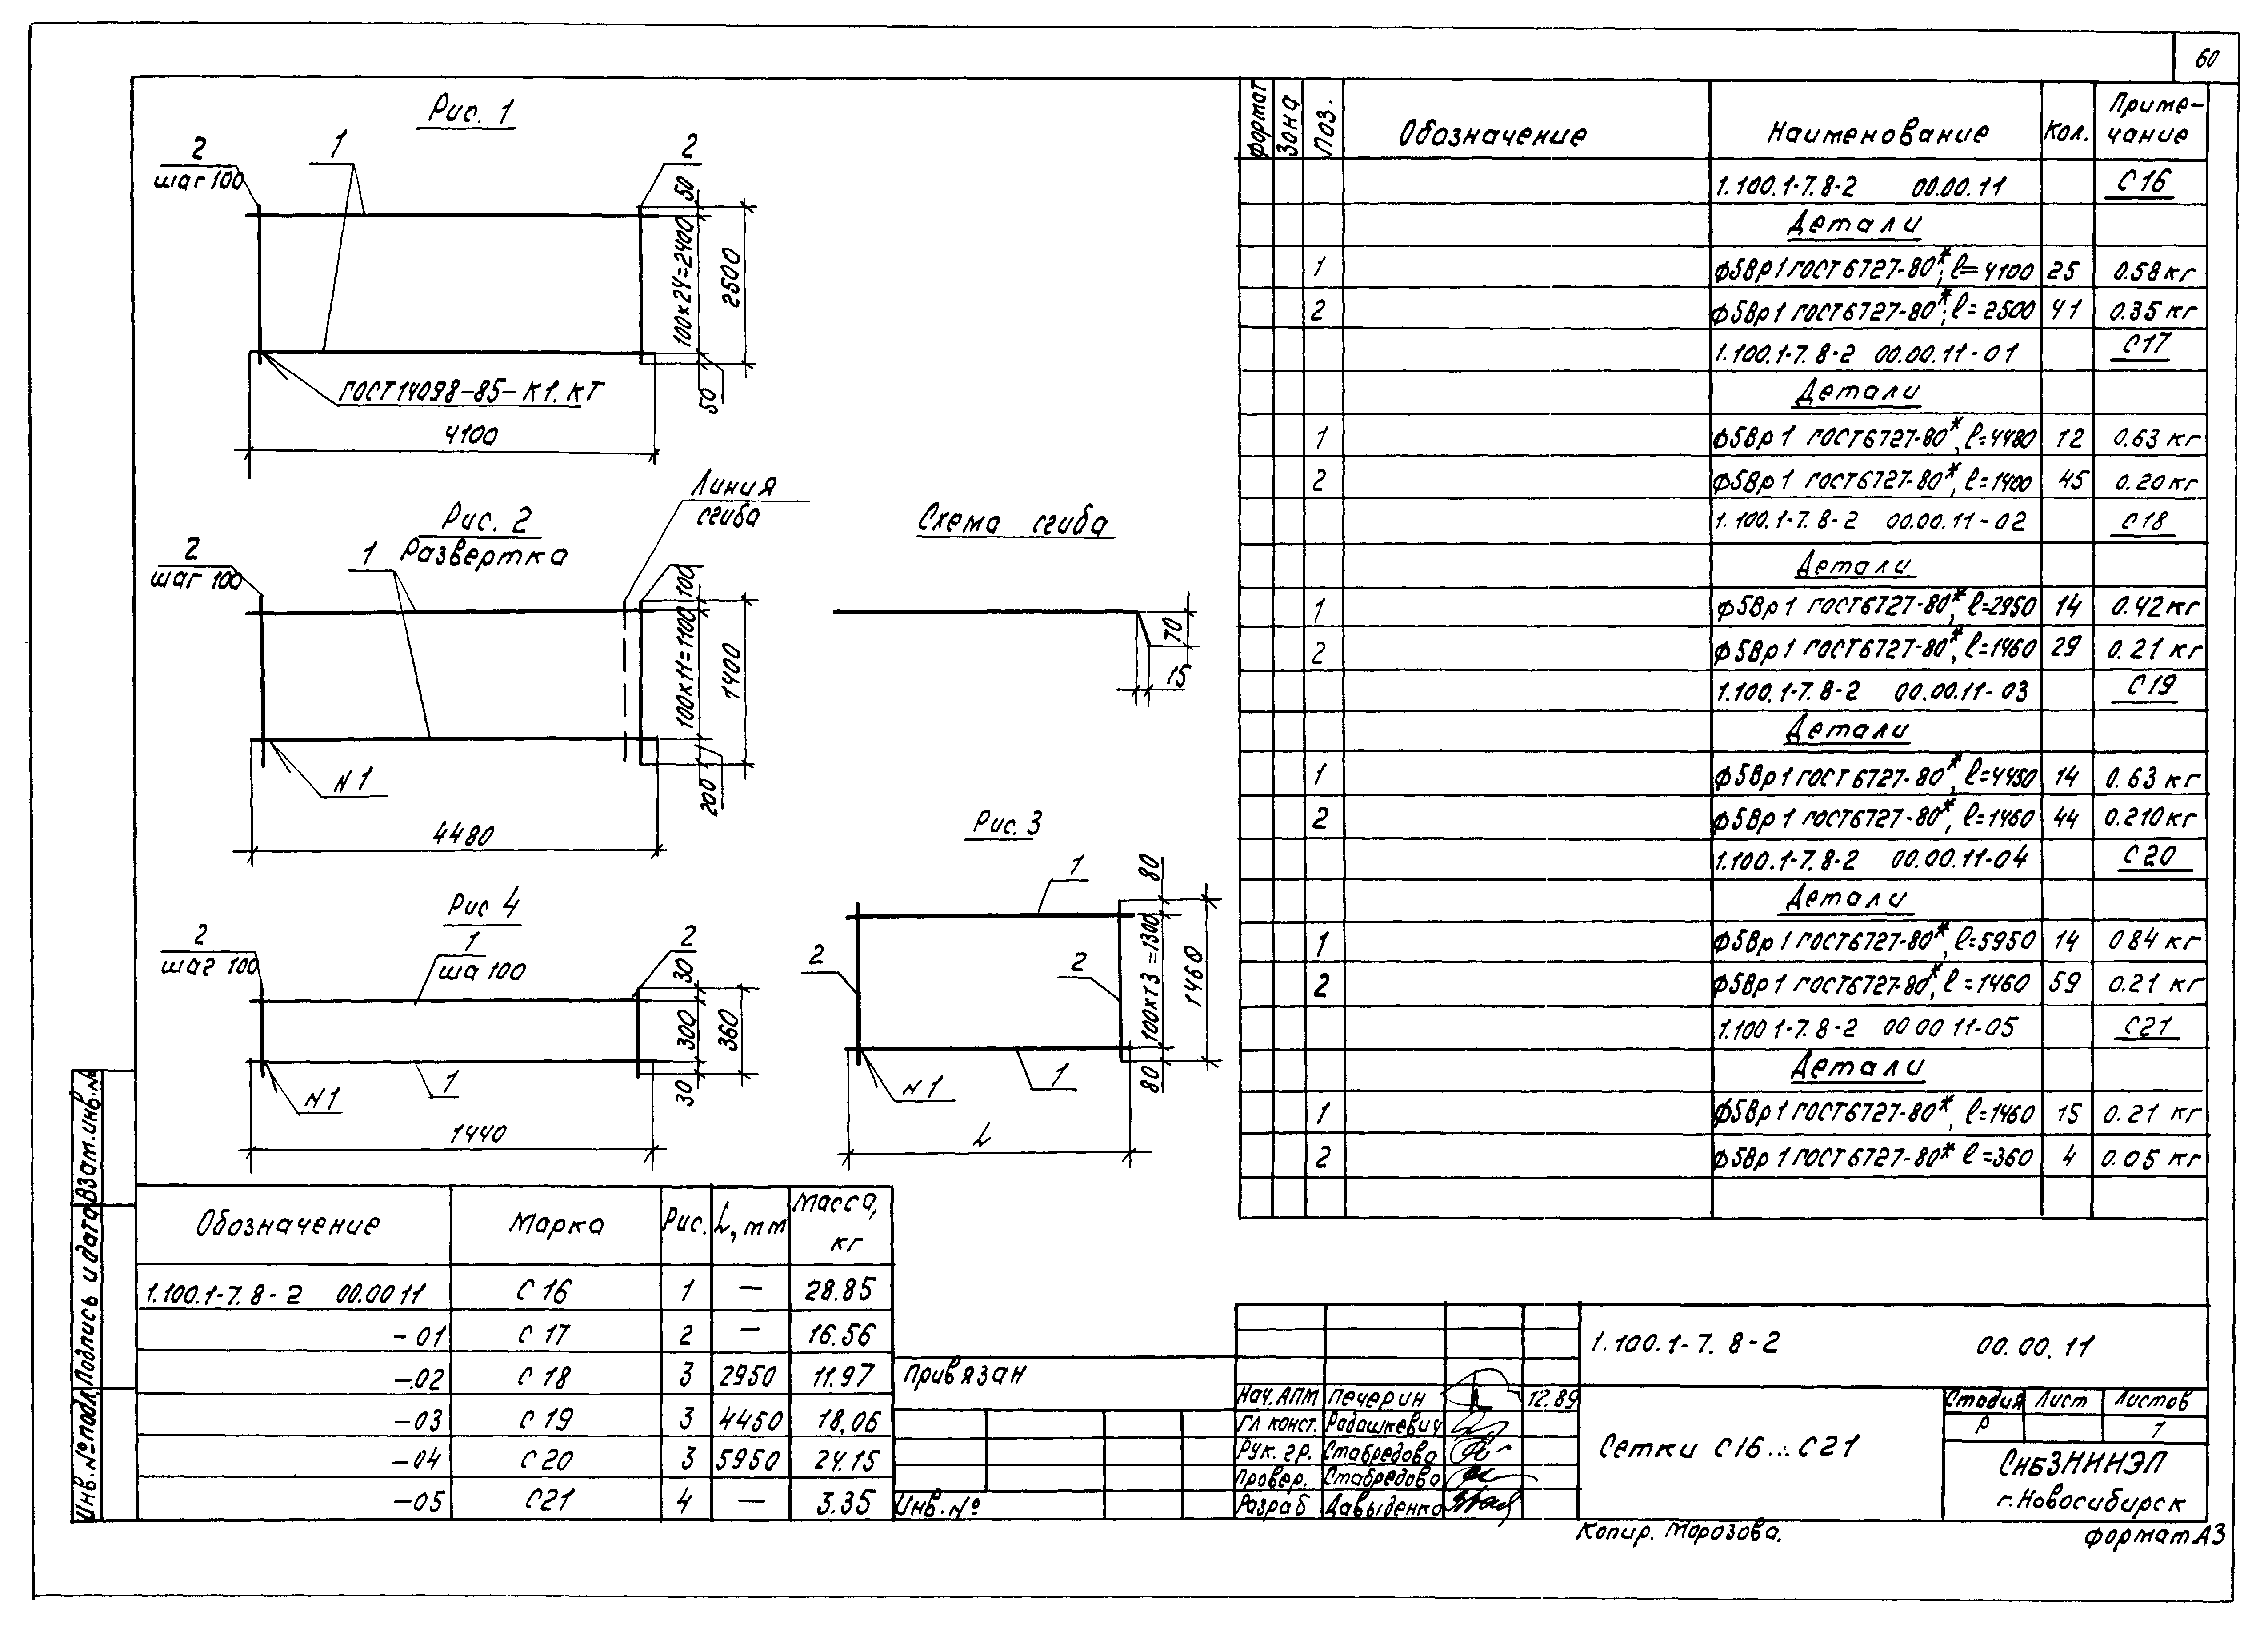 60
Рис. 1
2
шаг 100
1
2
50
100х24=2400
2500
50
ГОСТ14098-85-К1.КТ
4100
Рис. 2
Развертка
Линия
сгиба
2
шаг 100
1
100
100х11=1100
1400
200
N1
4480
Схема сгиба
70
15
Рис. 3
1
80
2
2
100х13=1300
1460
80
N1
1
L
Рис 4
2
шаг 100
1
ша 100
2
30
300
360
30
N1
1
1440
формат Зона Поз. Обозначение Наименование Кол. Приме-
чание
1.100.1-7.8-2 00.00.11 С16
Детали
1 ф5Вр1 ГОСТ6727-80*, l=4100 25 0.58кг
2 ф5Вр1 ГОСТ6727-80*, l=2500 41 0.35кг
1.100.1-7.8-2 00.00.11-01 С17
Детали
1 ф5Вр1 ГОСТ6727-80*, l=4480 12 0.63кг
2 ф5Вр1 ГОСТ6727-80*, l=1400 45 0.20кг
1.100.1-7.8-2 00.00.11-02 С18
Детали
1 ф5Вр1 ГОСТ6727-80*, l=2950 14 0.42кг
2 ф5Вр1 ГОСТ6727-80*, l=1460 29 0.21 кг
1.100.1-7.8-2 00.00.11-03 С19
Детали
1 ф5Вр1 ГОСТ6727-80*, l=4450 14 0.63 кг
2 ф5Вр1 ГОСТ6727-80*, l=1460 44 0.210кг
1.100.1-7.8-2 00.00.11-04 С20
Детали
1 ф5Вр1 ГОСТ6727-80*, l=5950 14 0 84 кг
2 ф5Вр1 ГОСТ6727-80*, l=1460 59 0.21 кг
1.100 1-7.8-2 00 00 11-05 С21
Детали
1 ф5Вр1 ГОСТ6727-80*, l=1460 15 0.21 кг
2 ф5Вр1 ГОСТ6727-80* l=360 4 0.05 кг
Обозначение Марка Рис. L, mm Масса,
кг
1.100.1-7.8-2 00.00 11 С 16 1 — 28.85
-01 С 17 2 — 16.56
-.02 С 18 3 2950 11.97
-03 С 19 3 4450 18,06
-04 С 20 3 5950 24.15
-05 С21 4 — 3.35
Привязан
Инв. №
Нач. АПМ Печерин 12.89
Гл конст. Радашкевич
Рук. гр. Стабредова
Провер. Стабредова
Разраб Давыденко
1.100.1-7.8-2 00.00.11
Сетки С16...С21
Стадия Лист Листов
Р 1
СибЗНИИЭП
г.Новосибирск
Копир. Морозова.
формат А3
Инв. № подл. Подпись и дата Взам. инв. №